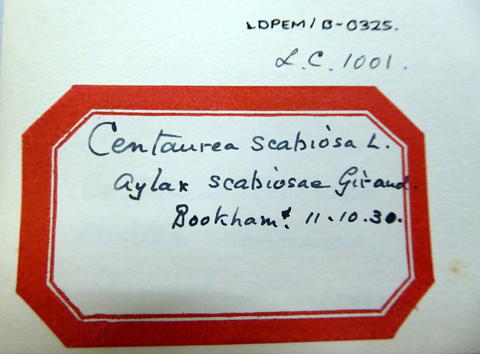 LDPEM/B-0325.
L.C. 1001.
Centaurea scabiosa L.
Aylax scabiosae Giraud.
Bookham. 11.10.30.